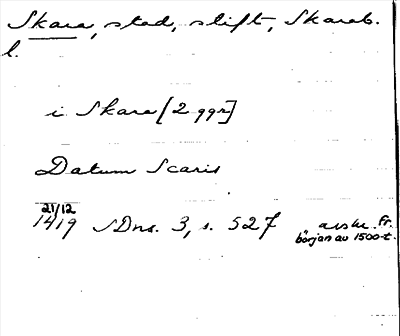 Skara, stad, stift, Skarab.
l.
i Skara [2 ggr]
Datum Scaris
21/12
1419 SDns. 3, s. 527 avskr. fr.
början av 1500-t.